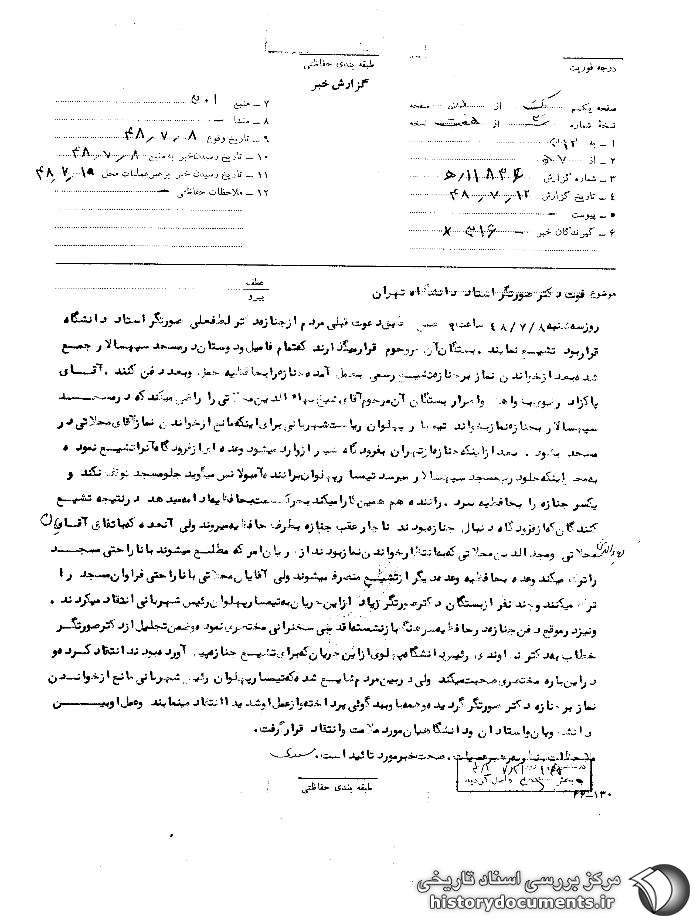 طبقه بندی حفاظتی
درجه فوریت
گزارش خبر
صفحه یکم از صفحه
نسخهٔ شماره از هفت نسخه
۱ ـ به ۳۱۲
۲ ـ از ۷ ه‍
۳ ـ شماره گزارش ۱۱۸۴۶/ه‍
۴ ـ تاریخ گزارش ۴۸/۷/۱۲
۵ ـ پیوست ـ
۶ ـ گیرندگان خبر ۳۱۶ x
۷ ـ منبع
۸ ـ منشا ـ
۹ ـ تاریخ وقوع ۴۸/۷/۸
۱۰ ـ تاریخ رسیدن خبر به منبع ۴۸/۷/۸
۱۱ ـ تاریخ رسیدن خبر برهبر عملیات محل ۴۸/۷/۱۰
۱۲ ـ ملاحظات حفاظتی ـ
عطف
پیرو
موضوع فوت دکتر صورتگر استاد دانشگاه تهران
روز سه شنبه ۴۸/۷/۸ ساعت طبق دعوت قبلی مردم از جنازه دکتر لطفعلی صورتگر استاد دانشگاه
قرار بود تشییع نمایند . بستگان آن مرحوم قرار میگذارند که تمام فامیل و دوستان در مسجد سپهسالار جمع
شده بعد از خواندن نماز بر جنازه تشییع رسمی بعمل آمده جنازه را بحافظیه حمل و بعد دفن کنند . آقای
پاکزاد رضوی بخواهد و اصرار بستگان آن مرحوم آقای شیخ بهاء الدین محلاتی را راضی میکند که در مسجد
سپهسالار بجنازه نماز بخواند تیمسار پهلوان ریاست شهربانی برای اینکه مانع از خواندن نماز آقای محلاتی در
مسجد بشود . بعد از اینکه جنازه از تهران بفرودگاه شیراز وارد میشود وعده ای از فرودگاه آنرا تشییع نموده
بمحض اینکه جلو درب مسجد سپهسالار میرسد تیمسار پهلوان براننده آمبولانس میگوید جلو مسجد توقف نکند و
یکسر جنازه را بحافظیه ببرد . راننده هم همین کار را میکند بحرکت سمت حافظیه ادامه میدهد در نتیجه تشییع
کنندگان که از فرودگاه دنبال جنازه بودند ناچار عقب جنازه بطرف حافظیه میروند ولی آنعده که باتفاق آقای
بهاءالدین محلاتی و مجد الدین محلاتی که بانتظار خواندن نماز بودند از جریان امر که مطلع میشوند با ناراحتی مسجد
را ترک میکند وعده بحافظیه وعده دیگر از تشییع منصرف میشوند ولی آقایان محلاتی با ناراحتی فراوان مسجد را
ترک میکنند و چند نفر از بستگان دکتر صورتگر زیاد از این جریان به تیمسار پهلوان رئیس شهربانی انتقاد میکردند .
و نیز در موقع دفن جنازه در حافظیه سرهنگ بازنشسته قدیمی سخنرانی مختصری نموده و ضمن تجلیل از دکتر صورتگر
خطاب به دکتر نهاوندی رئیس دانشگاه پهلوی از این جریان که برای تشییع جنازه پیش آورده بودند انتقاد کرده و
در این باره مختصری صحبت میکند ولی در بین مردم شایع شد که تیمسار پهلوان رئیس شهربانی مانع از خواندن
نماز بر جنازه دکتر صورتگر گردید و همه با بدگوئی پرداخته و از عمل او شدیدا انتقاد مینمایند وعمل او بین
دانشجویان و استادان و دانشگاهیان مورد ملامت و انتقاد قرار گرفت .
ملاحظات رهبر عملیات . صحت خبر مورد تائید است .
داخل گردید
۴۶-۱۳۰
طبقه بندی حفاظتی
مرکز بررسی اسناد تاریخی
historydocuments.ir